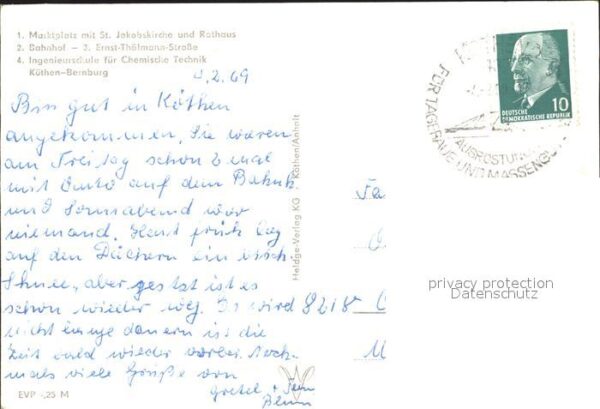 1. Marktplatz mit St. Jakobskirche und Rathaus
2. Bahnhof – 3. Ernst-Thälmann-Straße
4. Ingenieurschule für Chemische Technik
Köthen–Bernburg
.2.69
Bin gut in Köthen
angekommen. Sie waren
am Freitag schon 2 mal
mit Auto auf dem Bahnh.
und Sonnabend war
niemand. Heut früh lag
auf den Dächern ein bisch.
Schnee, aber jetzt ist es
schon wieder weg. Es wird
nicht lange dauern ist die
Zeit bald wieder vorbei. Noch-
mals viele Grüße von
Gretel +
EVP -,25 M
Heldge-Verlag KG Köthen/Anhalt
DEUTSCHE
DEMOKRATISCHE REPUBLIK
10
FÜR TAGEBAUE UND MASSENGU
AUSRÜSTUN
Fa
8218
M
privacy protection
Datenschutz